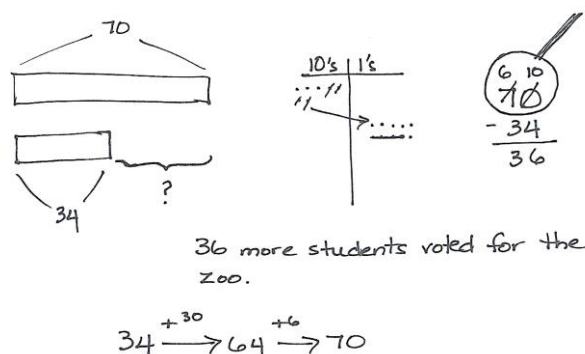 70
34
?
10's 1's
6 10
70
- 34
36
36 more students voted for the
zoo.
+30 +6
34 → 64 → 70